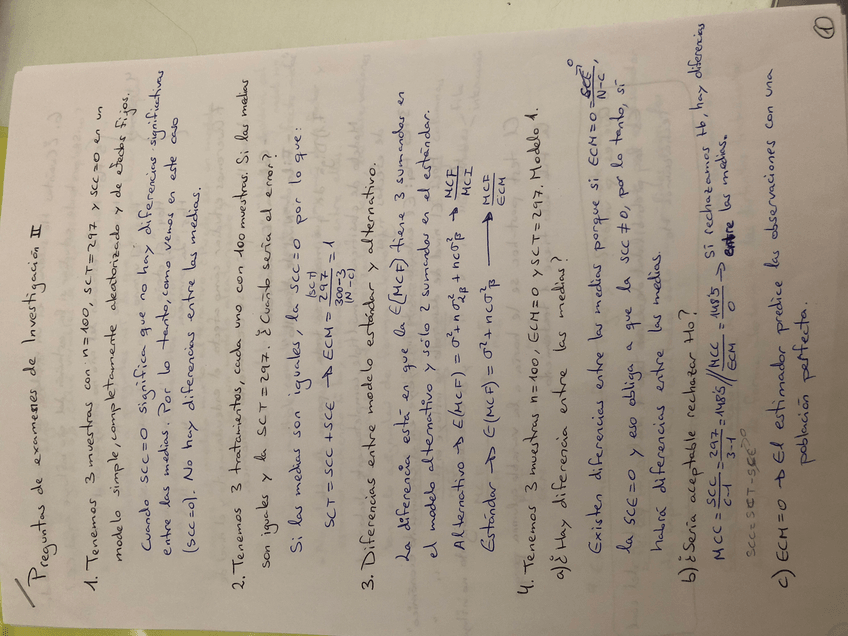 Preguntas de exámenes de Investigación II
1. Tenemos 3 muestras con n=100, SCT=297 y SCC=0 en un
modelo simple, completamente aleatorizado y de efectos fijos.
Cuando SCC=0 significa que no hay diferencias significativas
entre las medias. Por lo tanto, como vemos en este caso
(SCC=0). No hay diferencias entre las medias.
2. Tenemos 3 tratamientos, cada uno con 100 muestras. Si las medias
son iguales y la SCT=297. ¿Cuánto sería el error?
Si las medias son iguales, la SCC=0 por lo que:
SCT = SCC + SCE → ECM = (SCT) 297 / 300-3 (N-C) = 1
3. Diferencias entre modelo estándar y alternativo.
La diferencia está en que la E(MCF) tiene 3 sumandos en
el modelo alternativo y sólo 2 sumandos en el estándar.
Alternativo → E(MCF) = σ² + nσ²αβ + ncσ²β → MCF / MCI
Estándar → E(MCF) = σ² + ncσ²β → MCF / ECM
4. Tenemos 3 muestras n=100, ECM=0 y SCT=297. Modelo 1.
a) ¿Hay diferencia entre las medias?
Existen diferencias entre las medias porque si ECM=0 = SCE→0 / N-C,
la SCE=0 y eso obliga a que la SCC≠0, por lo tanto, sí
habrá diferencias entre las medias.
b) ¿Sería aceptable rechazar Ho?
MCC = SCC / C-1 = 297 / 3-1 = 148'5 // MCC / ECM = 148'5 / 0 → Si rechazamos Ho, hay diferencias
entre las medias.
SCC = SCT - SCE→0
c) ECM=0 → El estimador predice las observaciones con una
población perfecta.
1